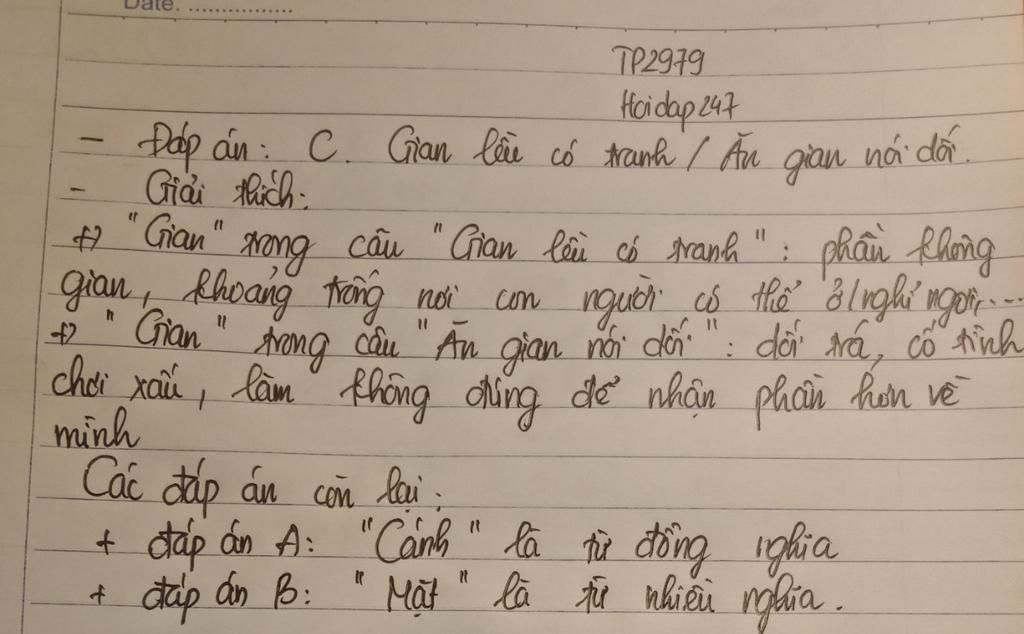 Date. ................
TP2979
Hoidap247
- Đáp án: C. Gian lều có tranh / Ăn gian nói dối.
- Giải thích:
+) "Gian" trong câu "Gian lều có tranh": phần không
gian, khoảng trống nơi con người có thể ở/nghỉ ngơi,...
+) "Gian" trong câu "Ăn gian nói dối": dối trá, cố tình
chơi xấu, làm không đúng để nhận phần hơn về
mình
Các đáp án còn lại:
+ đáp án A: "Cánh" là từ đồng nghĩa
+ đáp án B: "Mặt" là từ nhiều nghĩa.